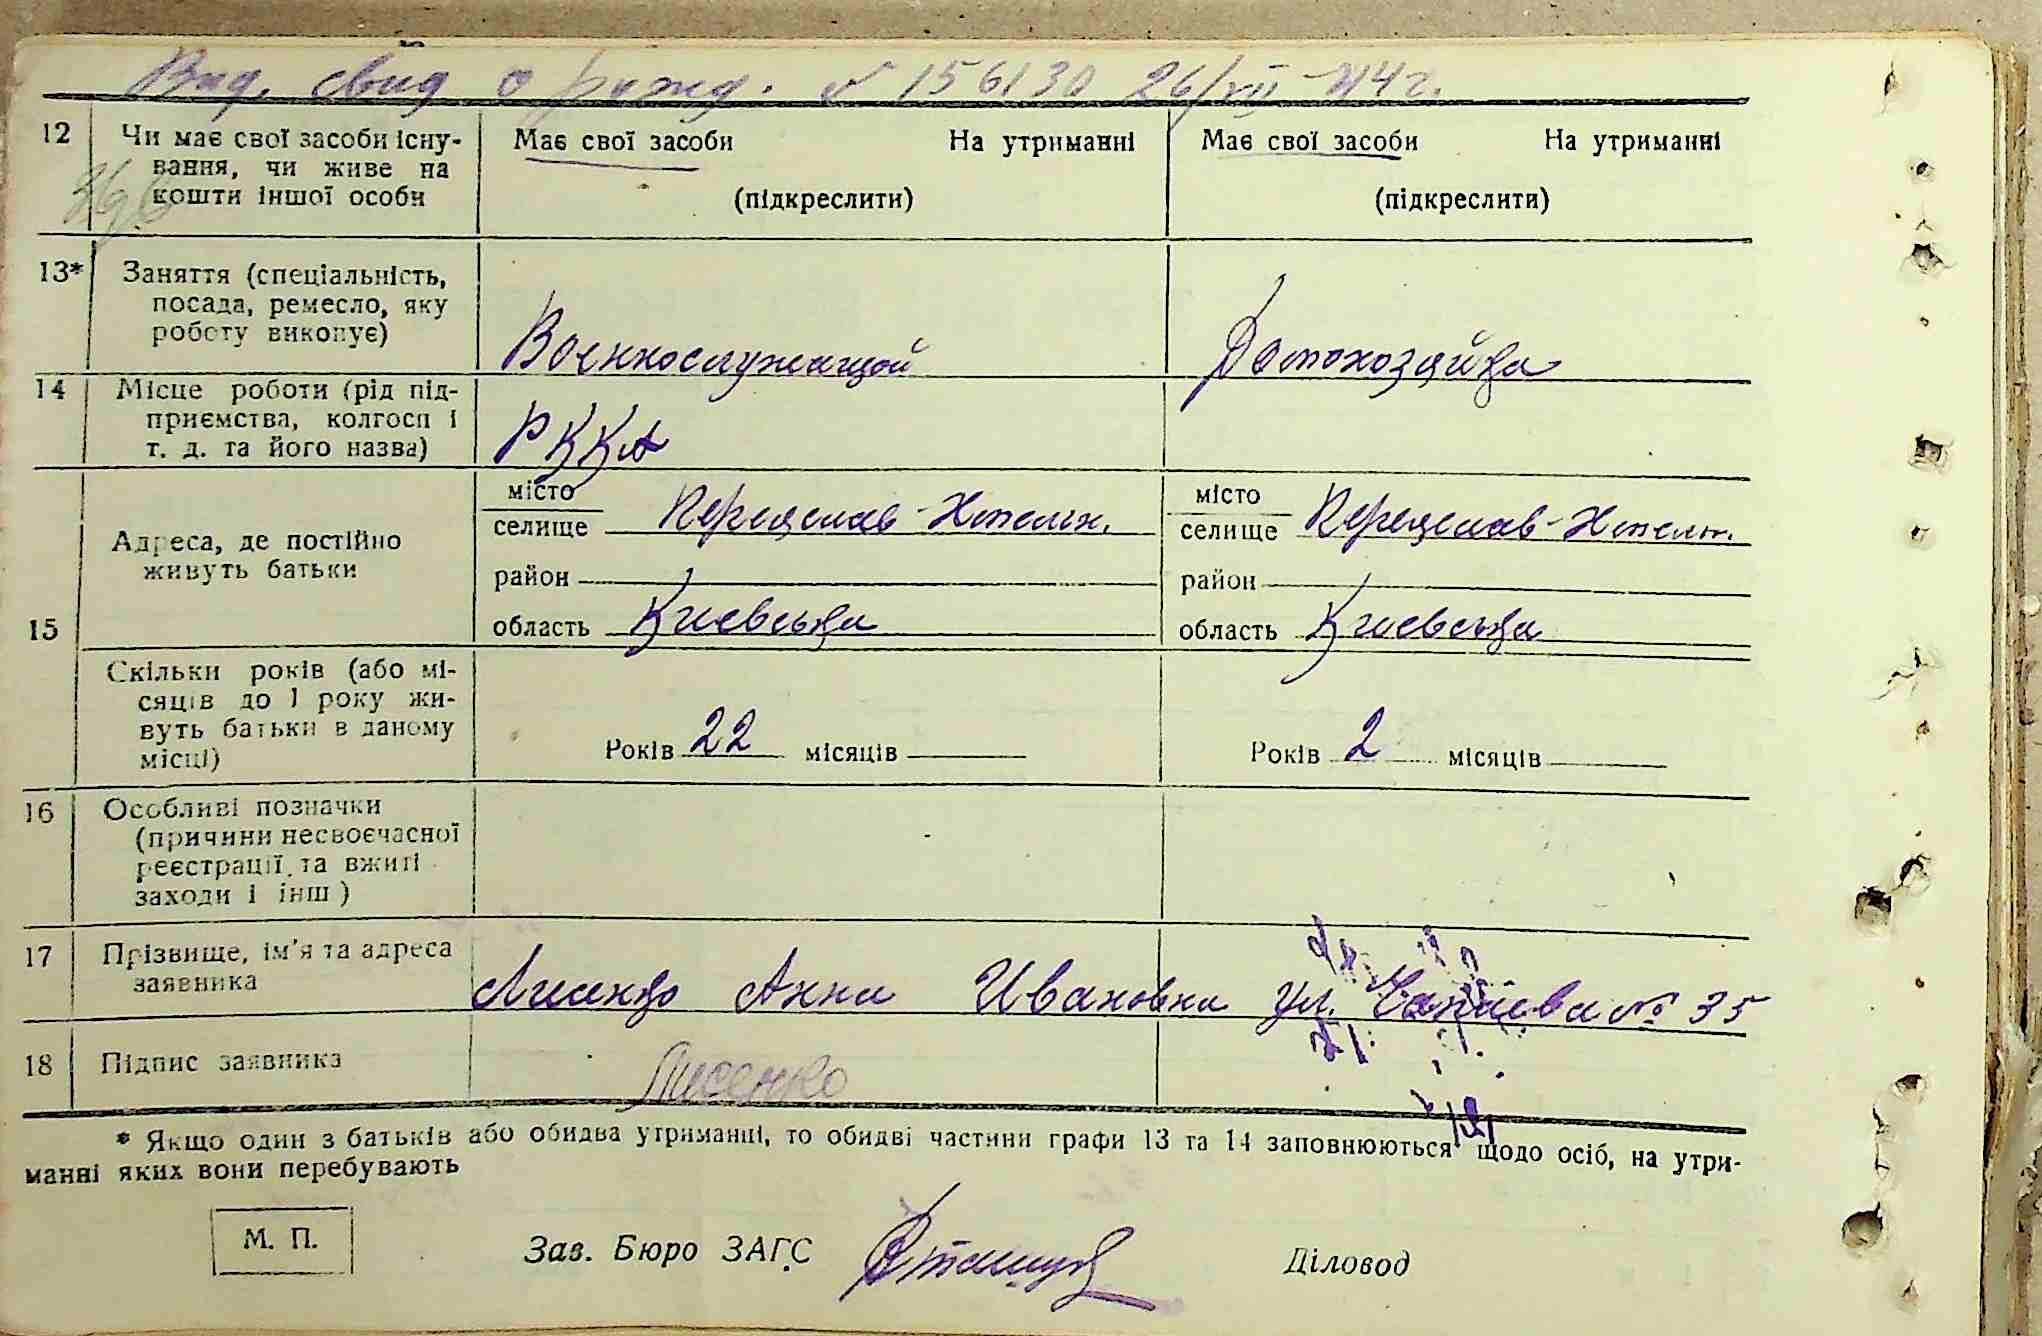 Выд. свид о рожд. № 156130 26/VII-44г.
12 Чи має свої засоби існу-
вання, чи живе на
кошти іншої особи
Має свої засоби На утриманні
(підкреслити)
Має свої засоби На утриманні
(підкреслити)
13* Заняття (спеціальність,
посада, ремесло, яку
роботу виконує)
Военнослужащой
Домохозяйка
14 Місце роботи (рід під-
приємства, колгосп і
т. д. та його назва)
РККА
15 Адреса, де постійно
живуть батьки
місто
селище Переяслав-Хмельн.
район
область Киевська
місто
селище Переяслав-Хмельн.
район
область Киевська
Скільки років (або мі-
сяців до 1 року жи-
вуть батьки в даному
місці)
Років 22 місяців
Років 2 місяців
16 Особливі позначки
(причини несвоєчасної
реєстрації та вжиті
заходи і інш)
17 Прізвище, ім'я та адреса
заявника
Лисенко Анна Ивановна ул. Чапаева № 35
18 Підпис заявника
Лисенко
* Якщо один з батьків або обидва утриманні, то обидві частини графи 13 та 14 заповнюються щодо осіб, на утри-
манні яких вони перебувають
М. П.
Зав. Бюро ЗАГС
Діловод